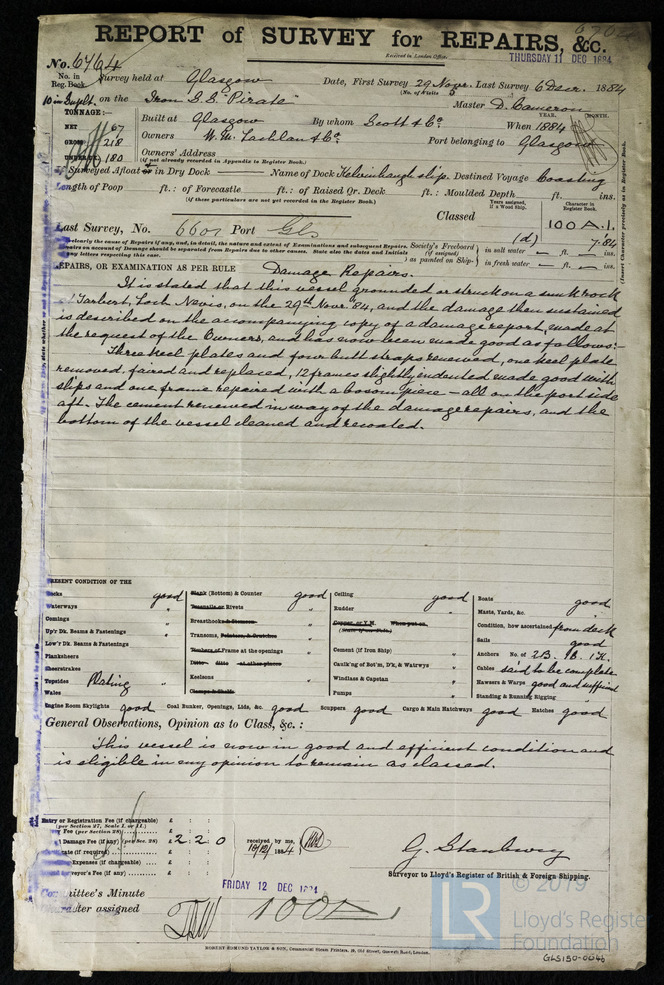 REPORT of SURVEY for REPAIRS, &c.
Received in London Office,
THURSDAY 11 DEC 1884
No. 6764
No. in Reg. Book.
Survey held at Glasgow
Date, First Survey 29 Novr. Last Survey 6 Decr. 1884
(No. of Visits 5
on the Iron S.S. "Pirate"
Master D. Cameron
TONNAGE:—
NET 67
GROSS 218
UNDER DK 180
Built at Glasgow By whom Scott & Co. When 1884
YEAR. MONTH.
Owners W. McLachlan & Co. Port belonging to Glasgow
Owners' Address
(if not already recorded in Appendix to Register Book.)
If Surveyed Afloat or in Dry Dock — Name of Dock Kelvinhaugh slip. Destined Voyage Coasting
Length of Poop ft.: of Forecastle ft.: of Raised Qr. Deck ft.: Moulded Depth ft. ins.
(if these particulars are not yet recorded in the Register Book.)
Years assigned, if a Wood Ship.
Character in Register Book.
Last Survey, No. 6601 Port Gls
Classed 100 A.1.
(d) 7.84
Society's Freeboard (if assigned) as painted on Ship— in salt water — ft. — ins.
in fresh water — ft. — ins.
REPAIRS, OR EXAMINATION AS PER RULE Damage Repairs.
It is stated that this vessel grounded or struck on a sunk rock
Tarbert, Loch Nevis, on the 29th Novr. '84, and the damage then sustained
is described on the accompanying copy of a damage report, made at
the request of the Owners, and has now been made good as follows:—
Three keel plates and four butt straps renewed, one keel plate
removed, faired and replaced, 12 frames slightly indented made good with
slips and one frame repaired with a bosom piece — all on the port side
aft. The cement renewed in way of the damage repairs, and the
bottom of the vessel cleaned and recoated.
PRESENT CONDITION OF THE
Decks good
Waterways "
Comings "
Up'r Dk. Beams & Fastenings "
Low'r Dk. Beams & Fastenings
Planksheers
Sheerstrakes
Topsides Plating "
Wales
Plank (Bottom) & Counter good
Treenails or Rivets "
Breasthooks & Stemson
Transoms, Pointers, & Crutches "
Timbers of Frame at the openings "
Ditto ditto at other places
Keelsons "
Clamps & Shelfs
Ceiling good
Rudder "
Copper, or Y.M. When put on.
Cement (if Iron Ship) "
Caulk'ng of Bot'm, D'k, & Watrwys "
Windlass & Capstan "
Pumps "
Boats good
Masts, Yards, &c. good
Condition, how ascertained from deck
Sails good
Anchors No. of 2B. 1S. 1K.
Cables said to be complete
Hawsers & Warps good and sufficient
Standing & Running Rigging
Engine Room Skylights good Coal Bunker, Openings, Lids, &c. good Scuppers good Cargo & Main Hatchways good Hatches good
General Observations, Opinion as to Class, &c.:
This vessel is now in good and efficient condition and
is eligible in my opinion to remain as classed.
Entry or Registration Fee (if chargeable) £ : :
(per Section 27, Scale I. or II.)
Fee (per Section 28) £ : :
Damage Fee (if any) (per Sec. 28) £ 2 : 2 : 0
received by me, 10/12/1884
Certificate (if required) £ : :
Expenses (if chargeable) £ : :
Surveyor's Fee (if any) £ : :
G. Stanbury
Surveyor to Lloyd's Register of British & Foreign Shipping.
Committee's Minute
FRIDAY 12 DEC 1884
Character assigned 100A
ROBERT EDMUND TAYLOR & SON, Commercial Steam Printers, 19, Old Street, Goswell Road, London.
LR © 2019
Lloyd's Register
Foundation
GLS150-0046